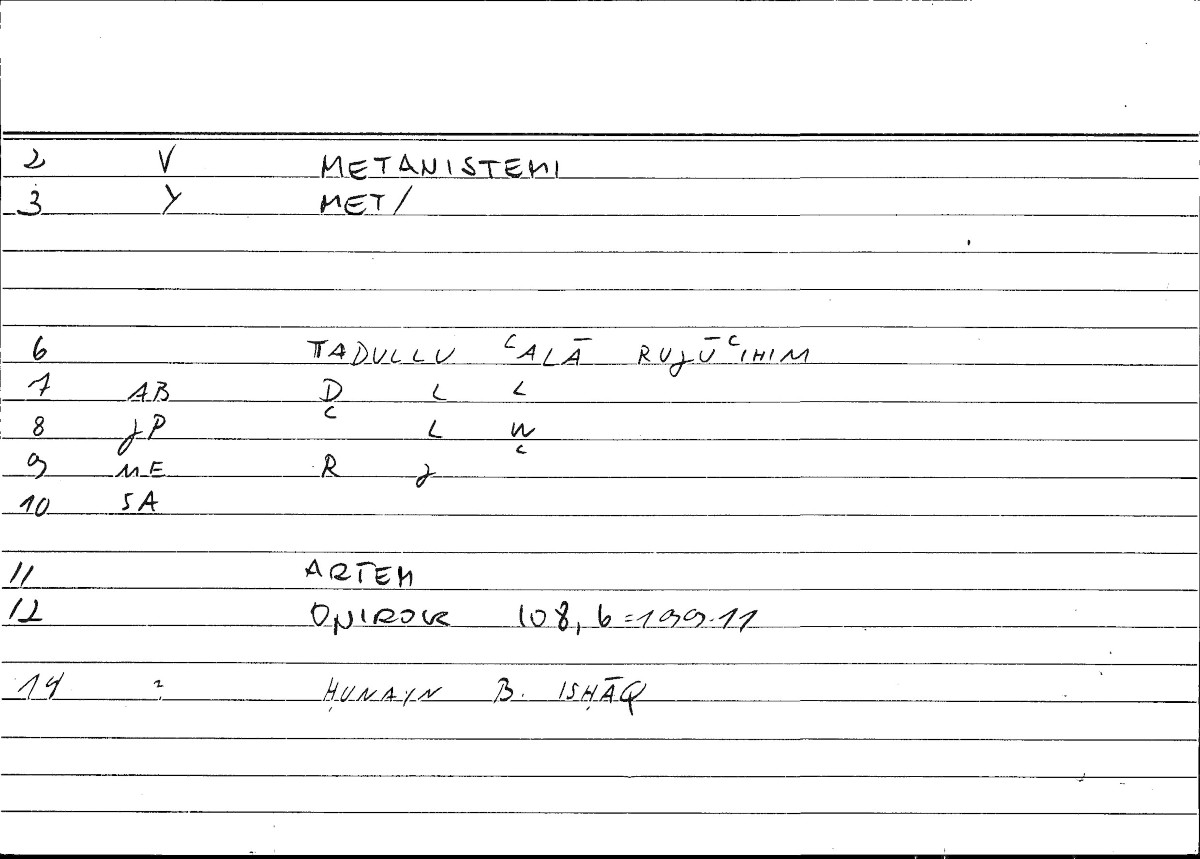 2 V METANISTEMI
3 Y MET/
6 TADULLU ʿALĀ RUJŪʿIHIM
7 AB D L L
8 JP ʿ L W
9 ME R J ʿ
10 SA
11 ARTEM
12 ONIROK 108,6=199.11
14 ? ḤUNAYN B. ISḤĀQ